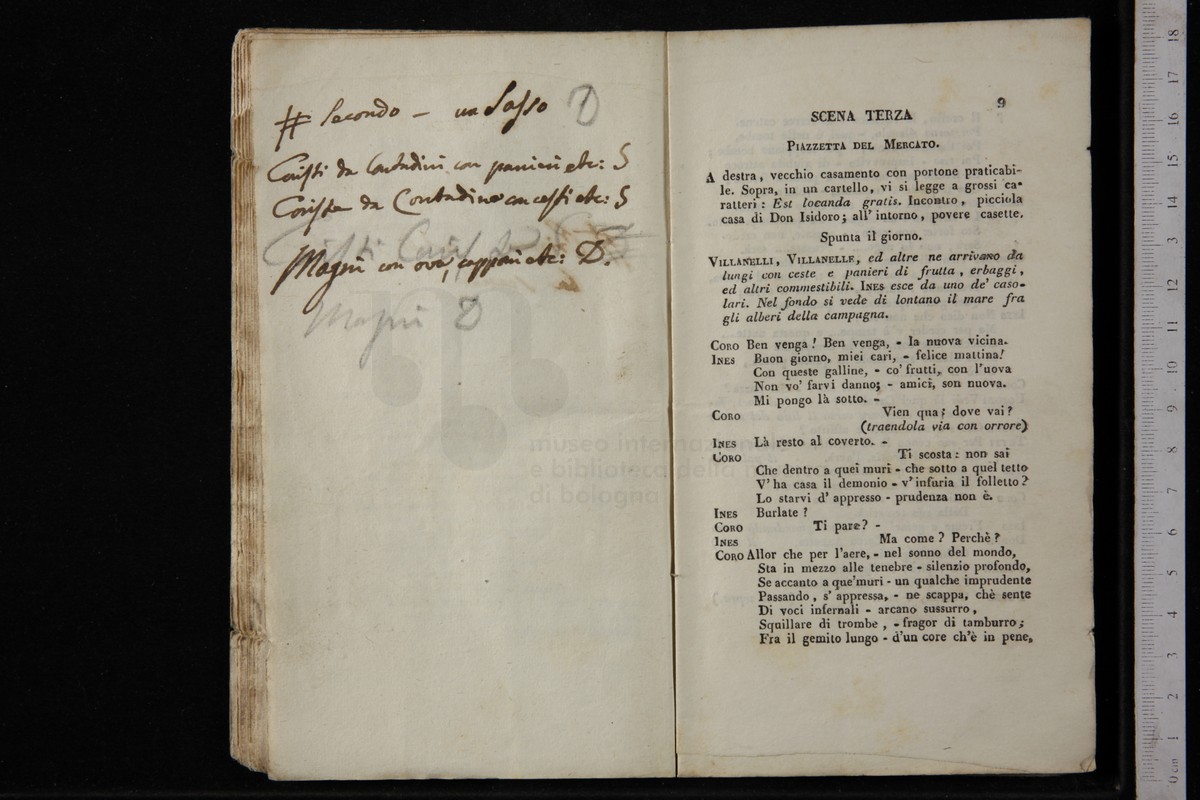 # Secondo — un Sasso D
Coristi da Contadini con panieri etc: S
Coriste da Contadine con cesti etc: S
Coristi
Magni con ova, capponi etc: D.
Magni D
museo internaz
e biblioteca della
di bologna
9
SCENA TERZA
PIAZZETTA DEL MERCATO.
A destra, vecchio casamento con portone praticabi-
le. Sopra, in un cartello, vi si legge a grossi ca-
ratteri : Est locanda gratis. Incontro, picciola
casa di Don Isidoro; all' intorno, povere casette.
Spunta il giorno.
VILLANELLI, VILLANELLE, ed altre ne arrivano da
lungi con ceste e panieri di frutta, erbaggi,
ed altri commestibili. INES esce da uno de' caso-
lari. Nel fondo si vede di lontano il mare fra
gli alberi della campagna.
CORO Ben venga! Ben venga, - la nuova vicina.
INES Buon giorno, miei cari, - felice mattina!
Con queste galline, - co' frutti, con l'uova
Non vo' farvi danno; - amici, son nuova.
Mi pongo là sotto. -
CORO Vien qua; dove vai?
(traendola via con orrore)
INES Là resto al coverto. -
CORO Ti scosta: non sai
Che dentro a quei muri - che sotto a quel tetto
V' ha casa il demonio - v' infuria il folletto?
Lo starvi d' appresso - prudenza non è.
INES Burlate?
CORO Ti pare? -
INES Ma come? Perchè?
CORO Allor che per l'aere, - nel sonno del mondo,
Sta in mezzo alle tenebre - silenzio profondo,
Se accanto a que'muri - un qualche imprudente
Passando, s' appressa, - ne scappa, chè sente
Di voci infernali - arcano sussurro,
Squillare di trombe, - fragor di tamburro;
Fra il gemito lungo - d'un core ch'è in pene,
18
17
16
15
14
13
12
11
10
9
8
7
6
5
4
3
2
1
0 cm